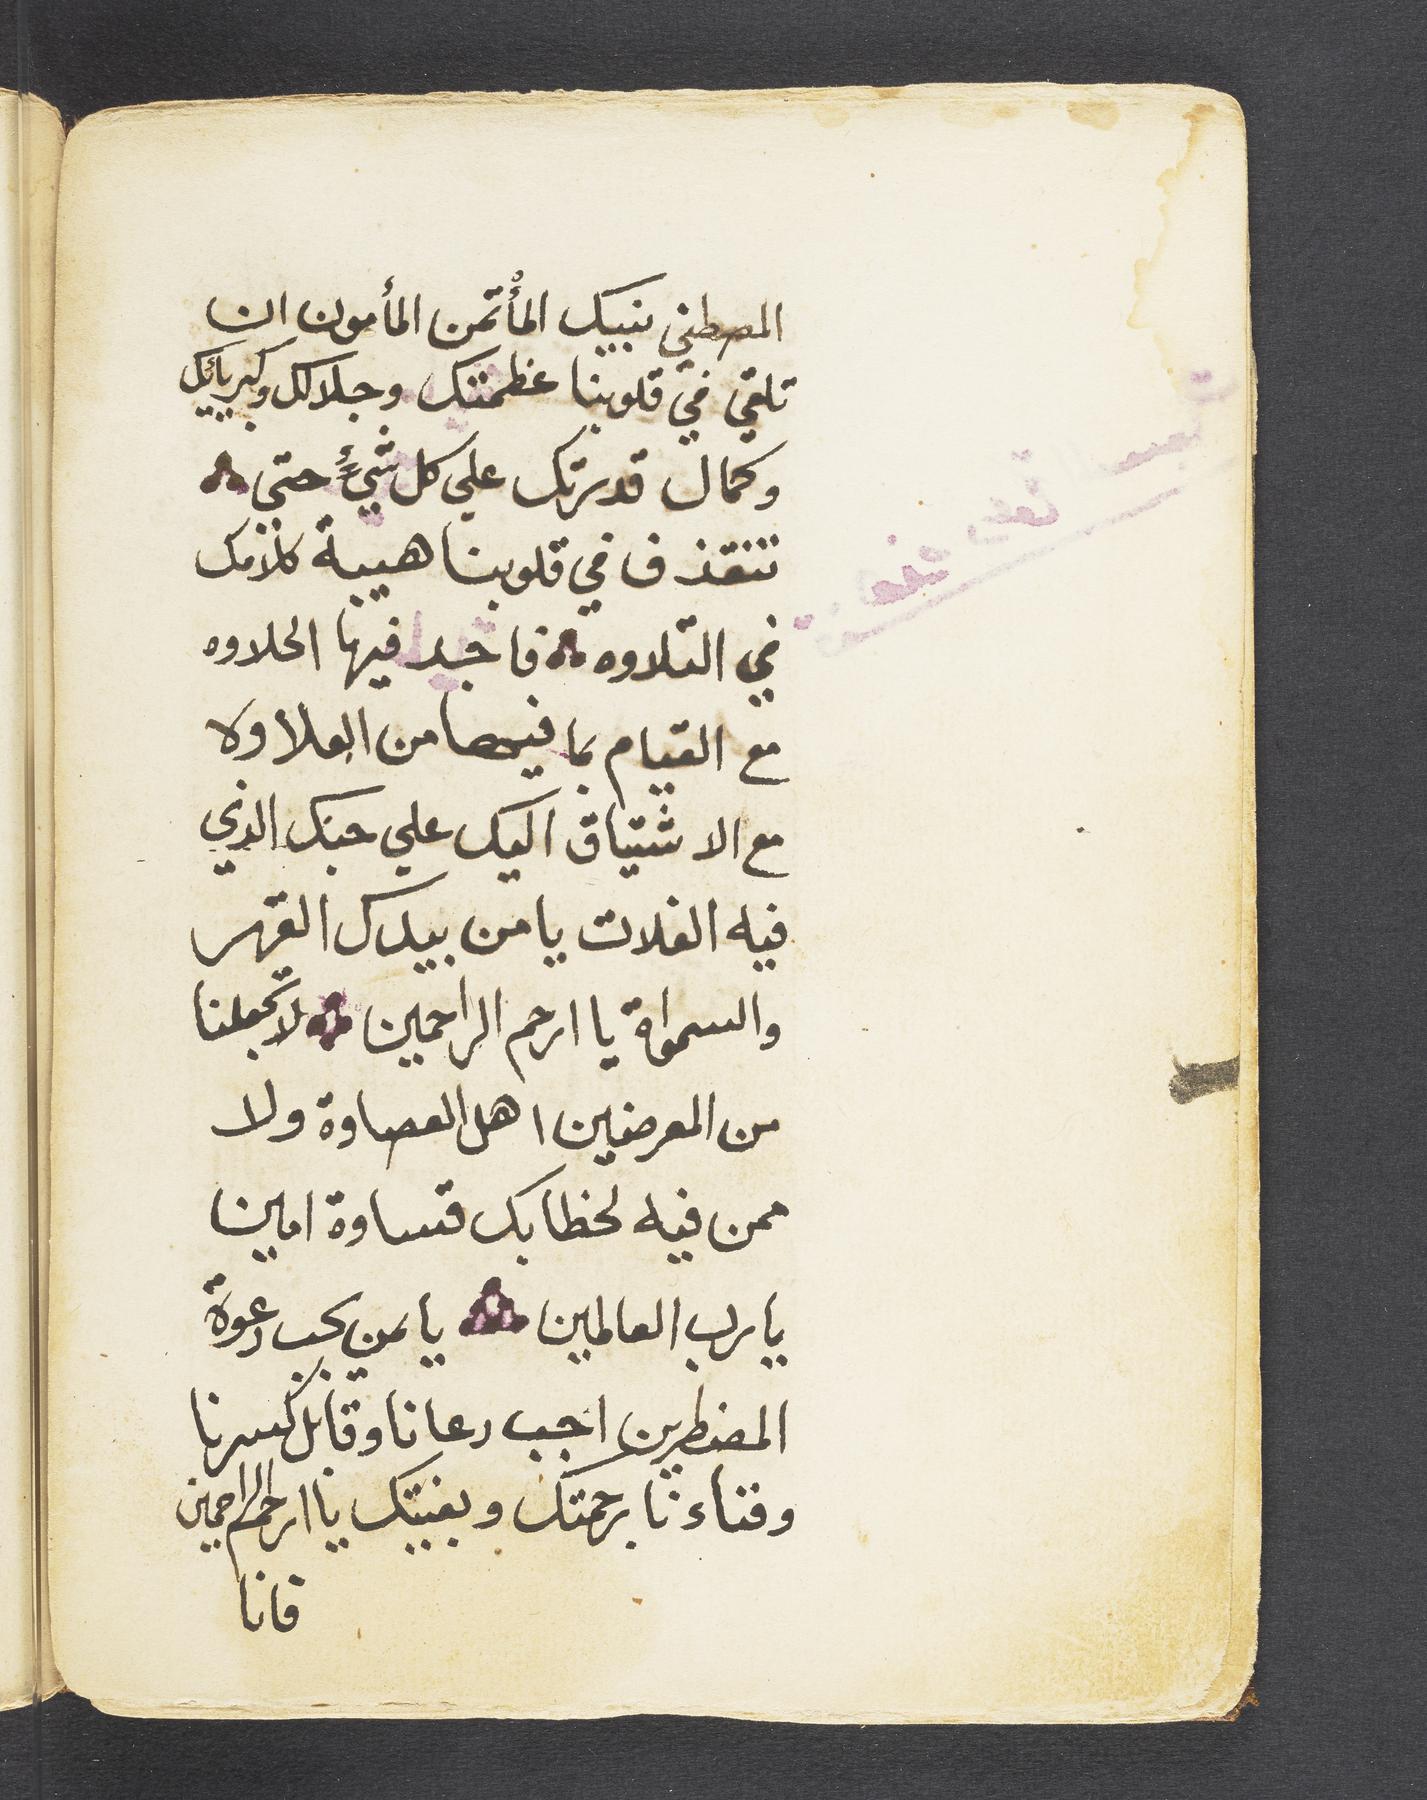 المصطفي بنبيك المأتمن المأمون ان
تلقي في قلوبنا عظمتك وجلالك وكبريائك
وكمال قدرتك علي كل شيء حتي
تنقذف في قلوبنا هيبة كلامك
في التلاوه فاجد فيها الحلاوه
مع القيام بما فيها من العلاوة
مع الاشتياق اليك علي حبك الذي
فيه الفلات يا من بيدك القهر
والسمواة يا ارحم الراحمين لا تجعلنا
من المعرضين اهل العصاوة ولا
ممن فيه لخطابك قساوة امين
يا رب العالمين يا من يجب دعوة
المضطرين اجب دعانا وقابل كسرنا
وفناءنا برحمتك وبغيتك يا ارحم الراحمين
فانا